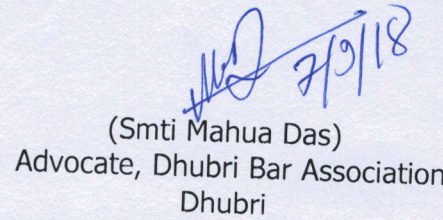 7/9/18
(Smti Mahua Das)
Advocate, Dhubri Bar Association
Dhubri